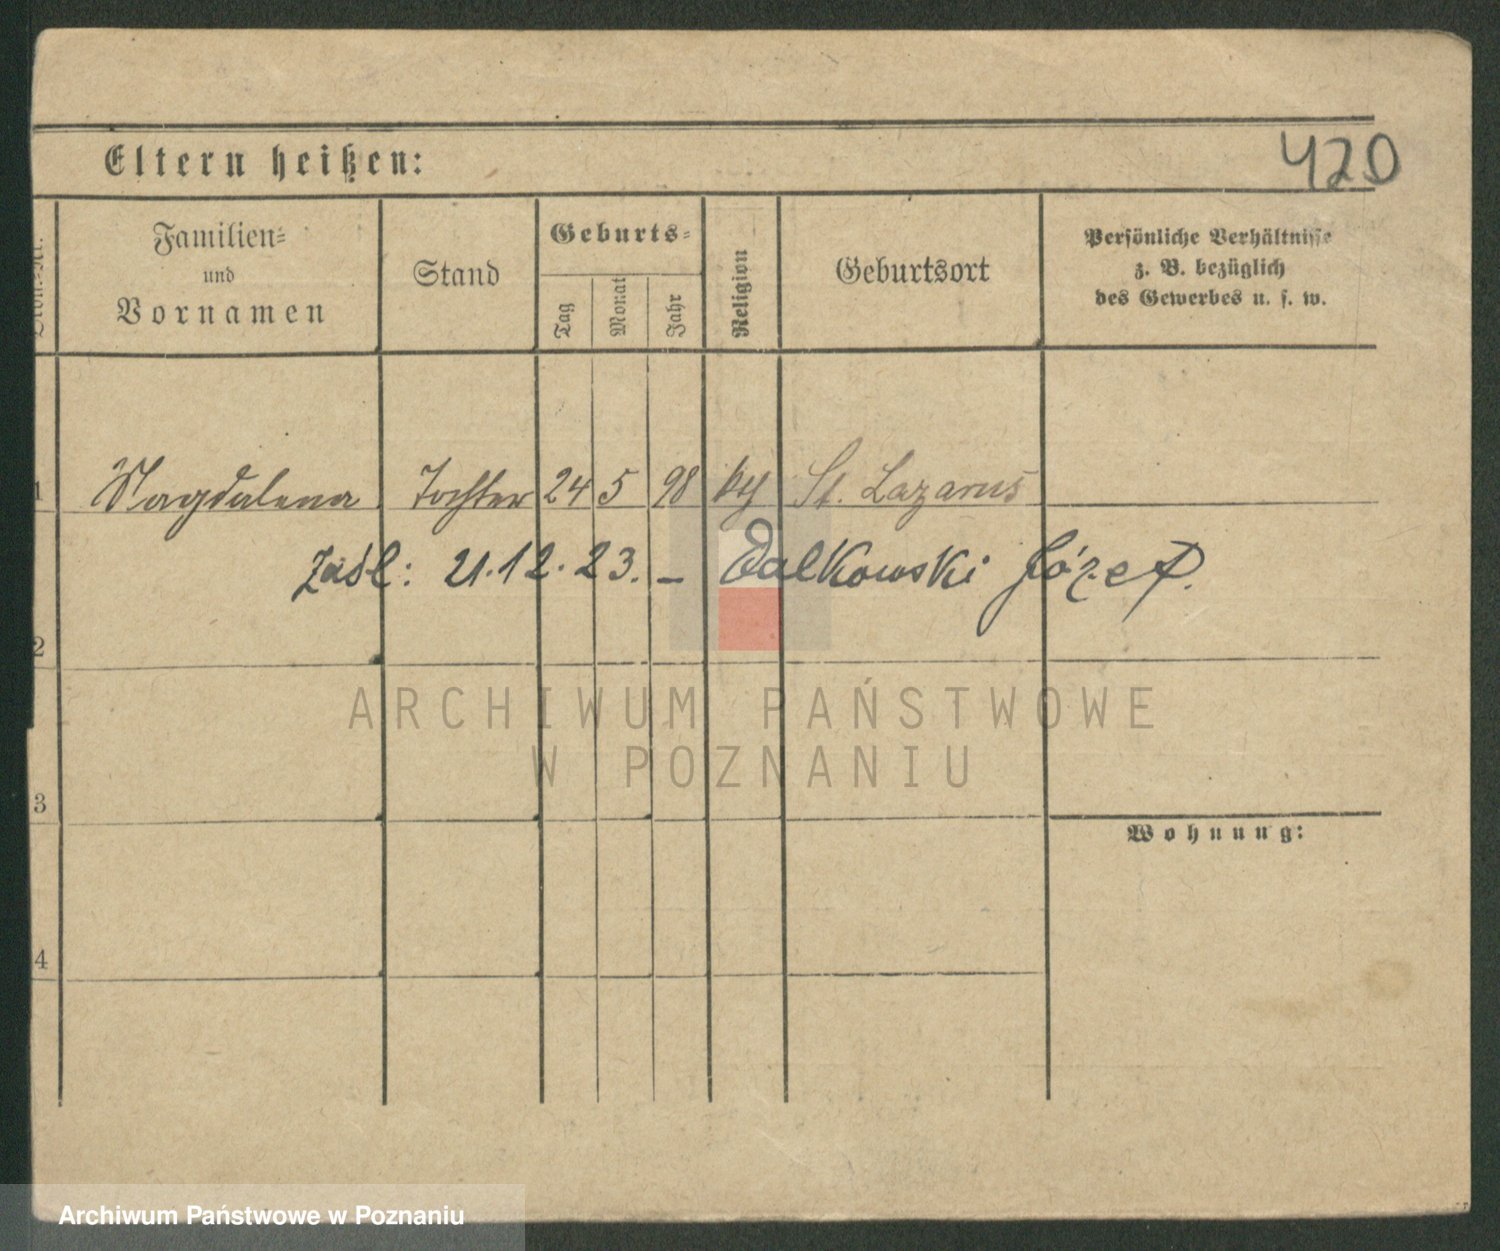 420
Eltern heißen:
Familien-
und
Vornamen
Stand
Geburts-
Tag
Monat
Jahr
Religion
Geburtsort
Persönliche Verhältnisse
z. B. bezüglich
des Gewerbes u. s. w.
1 Magdalena Tochter 24 5 98 St. Lazarus
zaśl: 21.12.23. – Dalkowski Józef.
2
ARCHIWUM PAŃSTWOWE
W POZNANIU
3
Wohnung:
4
Archiwum Państwowe w Poznaniu